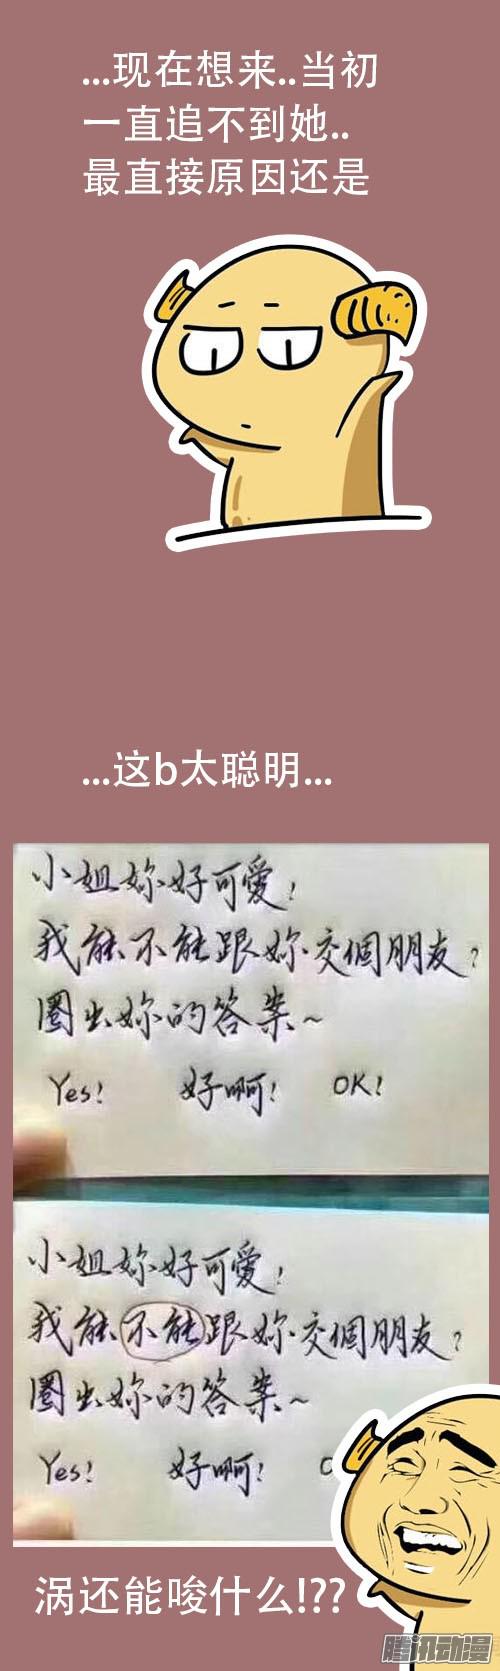 ...现在想来..当初
一直追不到她..
最直接原因还是
...这b太聪明...
小姐妳好可愛!
我能不能跟妳交個朋友?
圈出妳的答案~
Yes! 好啊! OK!
小姐妳好可愛!
我能不能跟妳交個朋友?
圈出妳的答案~
Yes! 好啊!
涡还能唆什么!??
腾讯动漫